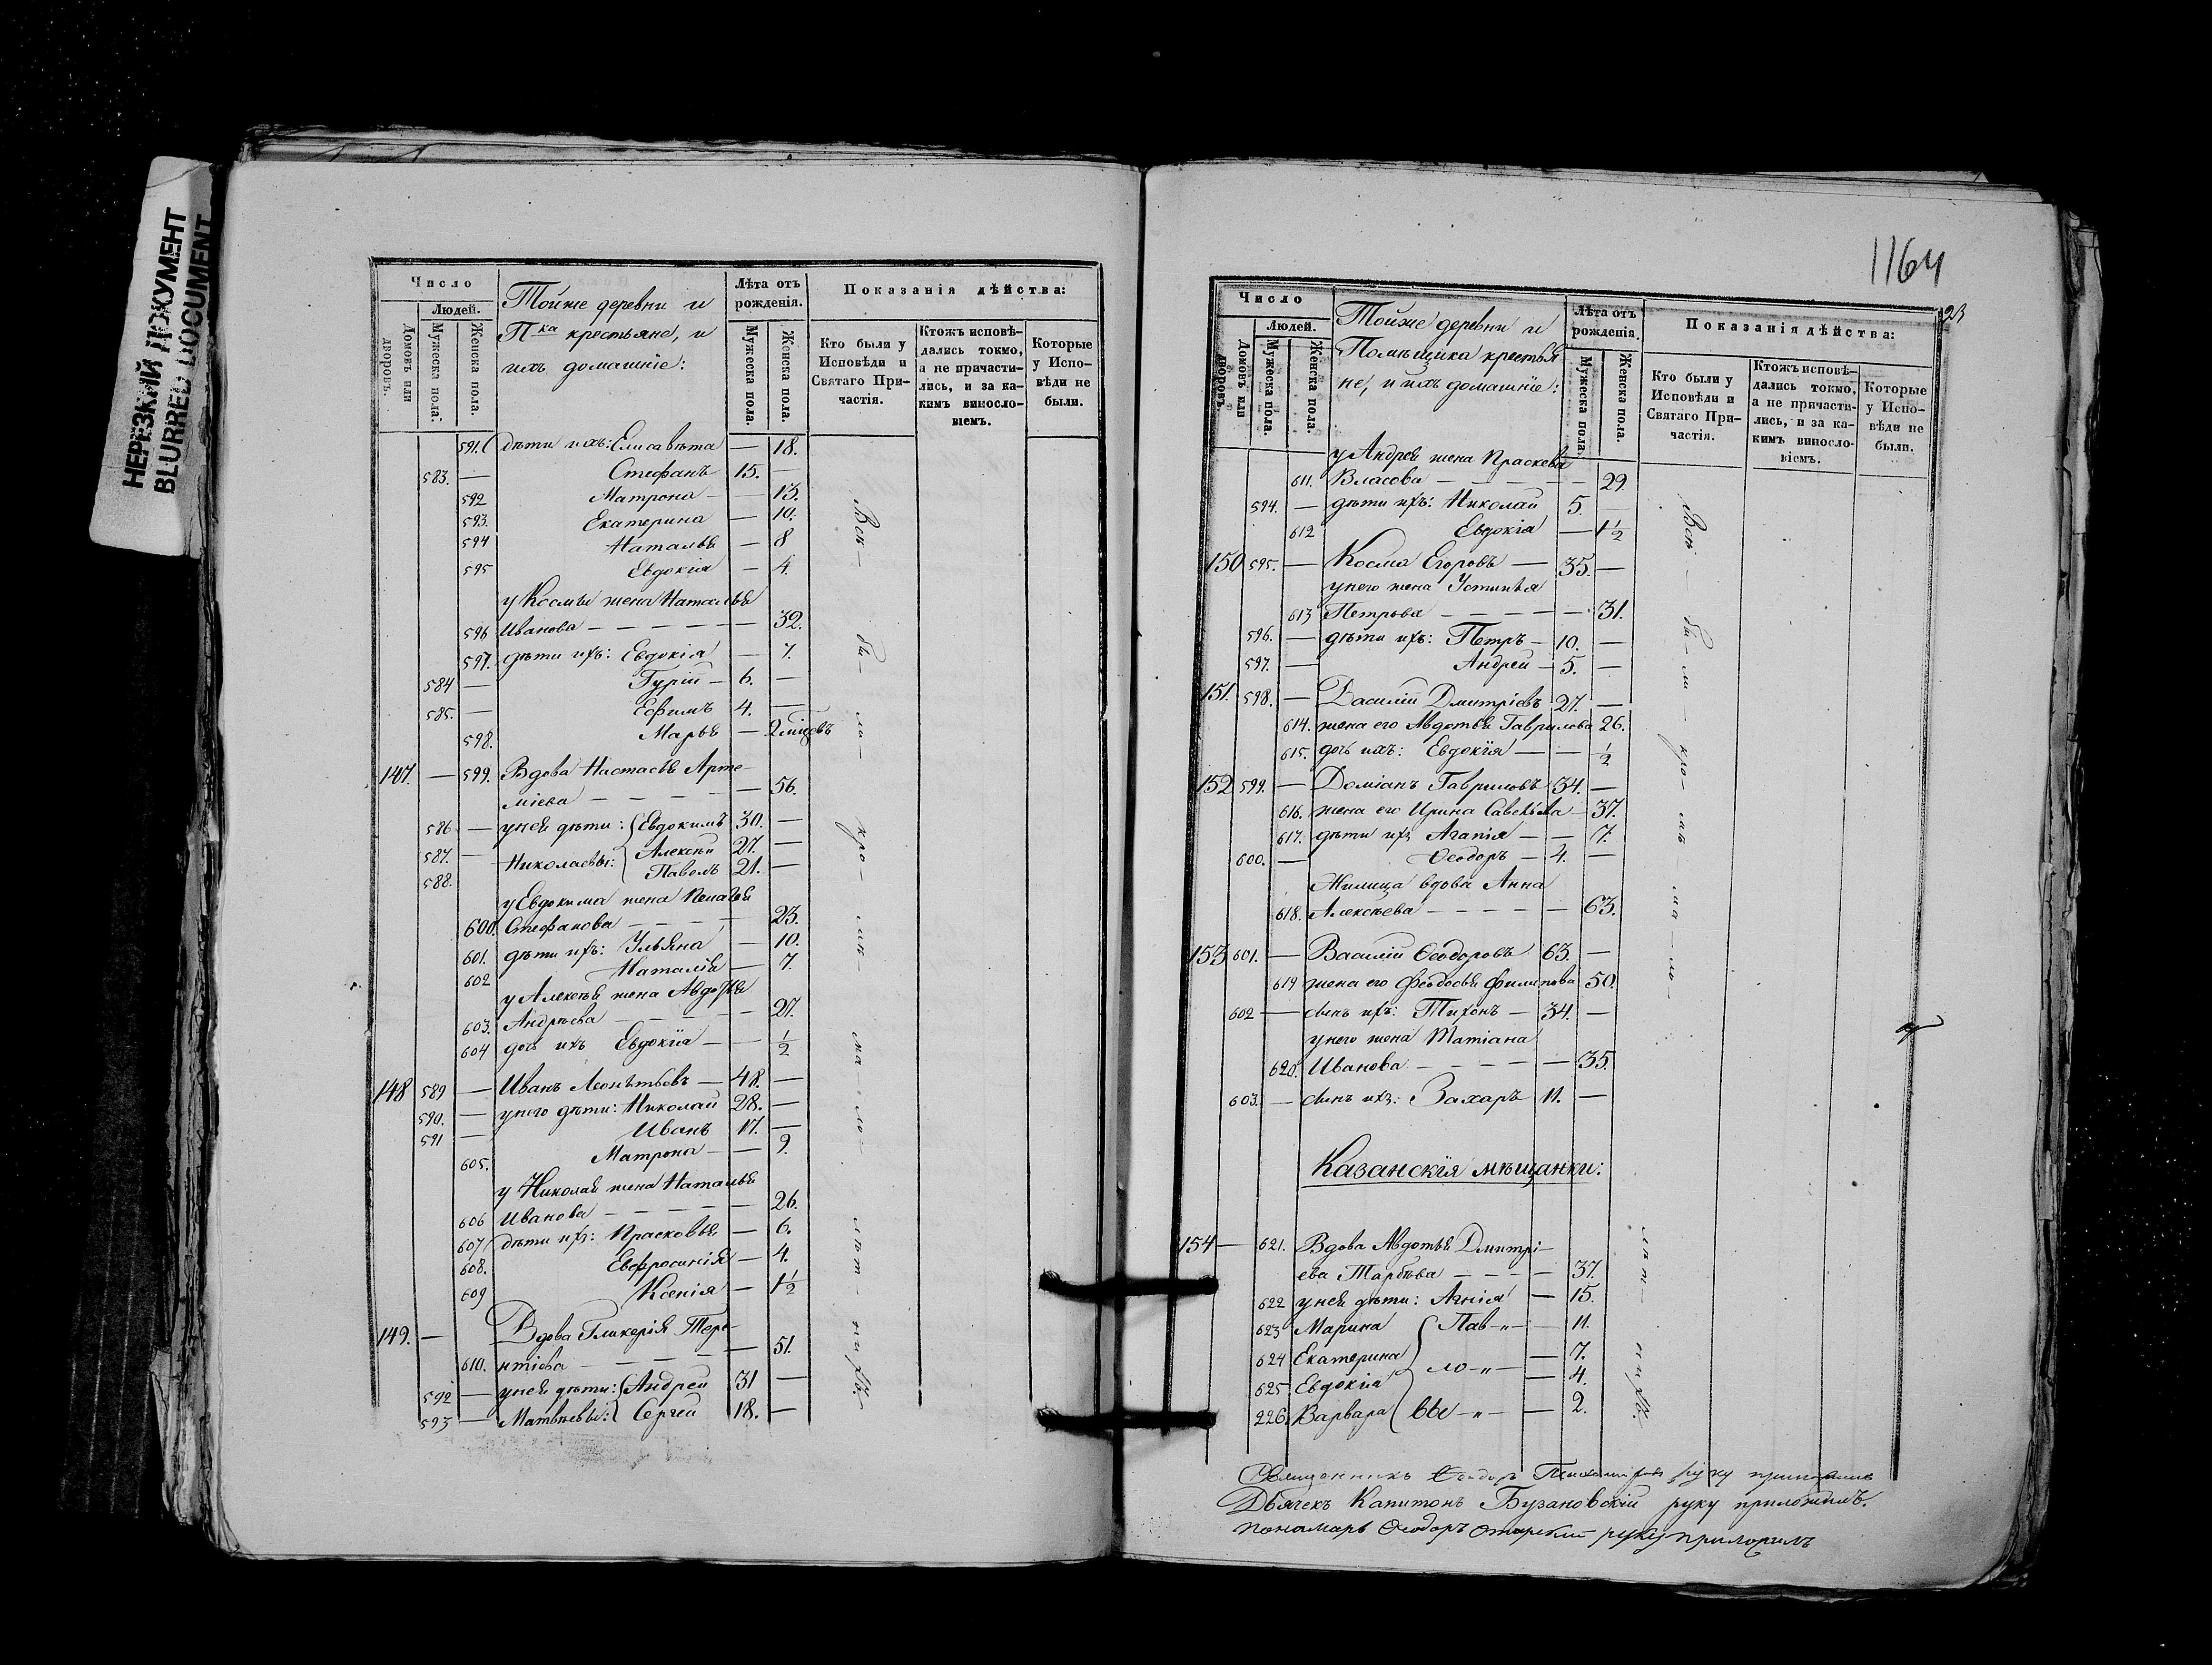 НЕРЕЗКИЙ ДОКУМЕНТ
BLURRED DOCUMENT
Число
Людей.
Домовъ или дворовъ.
Мужеска пола.
Женска пола.
Тойже деревни и
П-ка крестьяне, и
ихъ домашніе:
Лѣта отъ рожденія.
Мужеска пола.
Женска пола.
Показанія дѣйства:
Кто были у Исповѣди и Святаго Причастія.
Ктожъ исповѣдались токмо, а не причастились, и за какимъ винословіемъ.
Которые у Исповѣди не были.
591. дѣти ихъ: Елисавѣта — 18.
583. — Стефанъ 15. —
592 Матрона — 13.
593. Екатерина — 10.
594 Наталья — 8
595 Евдокія — 4.
у Космы жена Наталья
596 Иванова — 32.
597. дѣти ихъ: Евдокія — 7.
584 — Гурій — 6. —
585. — Ефимъ 4. —
598. Марья — 2 мѣсцевъ
147. — 599. Вдова Настасья Арте-
міева — 56.
586 — у ней дѣти: Евдокимъ 30. —
587. — Николаевы: Алексѣй 27. —
588. Павелъ 21. —
у Евдокима жена Пелагея
600. Стефанова — 23.
601. дѣти ихъ: Ульяна — 10.
602 Наталія — 7.
у Алексѣя жена Авдотья
603. Андрѣева — 27.
604 дочь ихъ Евдокія — 1/2
148 589 — Иванъ Леонтьевъ — 48. —
590. — у него дѣти: Николай 28. —
591 — Иванъ 17. —
605. Матрона — 9.
у Николая жена Наталья
606 Иванова — 26.
607 дѣти ихъ: Прасковья — 6.
608. Евфросинія — 4.
609 Ксенія — 1 1/2
149. — Вдова Гликерія Тере-
610. нтіева — 51.
592 — у ней дѣти: Андрей 31 —
593 — Матвѣевы: Сергей 18. —
Всѣ — бы — ли — кро — мѣ — ма — ло — лѣт — ныхъ.
1164
23
Число
Людей.
Домовъ или дворовъ.
Мужеска пола.
Женска пола.
Тойже деревни и
Помѣщика крестья
не, и ихъ домашніе:
Лѣта отъ рожденія
Мужеска пола.
Женска пола.
Показанія дѣйства:
Кто были у Исповѣди и Святаго Причастія.
Ктожъ исповѣдались токмо, а не причастились, и за какимъ винословіемъ.
Которые у Исповѣди не были.
у Андрея жена Праскева
611. Власова — 29.
594. — дѣти ихъ: Николай 5.
612 Евдокія — 1 1/2
150 595. — Косма Егоровъ — 35. —
у него жена Устинья
613 Петрова — 31.
596. — дѣти ихъ: Петръ — 10. —
597. — Андрей — 5. —
151. 598. — Василій Дмитріевъ 27. —
614. жена его Авдотья Гаврилова 26.
615. дочь ихъ: Евдокія — 1/2
152 599. — Доміанъ Гавриловъ 34. —
616. жена его Ирина Савельева — 37.
617. дѣти ихъ Агапія — 7.
600. — Ѳеодоръ — 4. —
Жилица вдова Анна
618. Алексѣева — 63.
153 601. — Василій Ѳеодоровъ 63. —
619 жена его Феодосья Филипова 50.
602 — сынъ ихъ: Тихонъ — 34. —
у него жена Татіана
620. Иванова — 35.
603. — сынъ ихъ: Захаръ 11. —
Казанскія мѣщанки:
154 — 621. Вдова Авдотья Дмитрі-
ева — 37.
622 у ней дѣти: Агнія — 15.
623 Марина Пав-„- 11.
624 Екатерина — 7.
625 Евдокія ло-„- — 4.
226. Варвара вы-„- — 2.
Всѣ — бы — ли — кро — мѣ — ма — ло — лѣт — ныхъ.
Священникъ Ѳеодоръ руку приложилъ
Дьячекъ Капитонъ Бузановскій руку приложилъ.
Пономарь Ѳеодоръ руку приложилъ